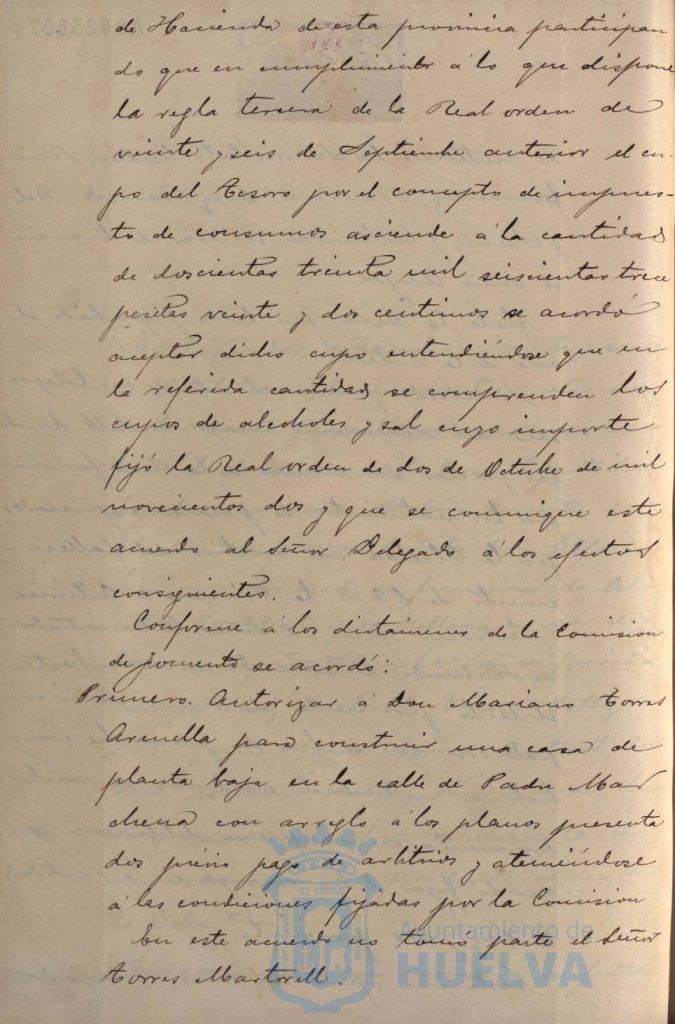 de Hacienda de esta provincia participan
do que en cumplimiento á lo que dispone
la regla tercera de la Real orden de
veinte y seis de Septiembre anterior el cu-
po del Tesoro por el concepto de impues-
to de consumos asciende á la cantidad
de doscientas treinta mil seiscientas trece
pesetas veinte y dos céntimos se acordó
aceptar dicho cupo entendiéndose que en
la referida cantidad se comprenden los
cupos de alcoholes y sal cuyo importe
fijó la Real orden de dos de Octubre de mil
novecientos dos y que se comunique este
acuerdo al Señor Delegado á los efectos
consiguientes.
Conforme á los dictámenes de la Comision
de Fomento se acordó:
Primero. Autorizar á Don Mariano Torres
Armella para construir una casa de
planta baja en la calle de Padre Mar
chena con arreglo á los planos presenta
dos prévio pago de arbitrios y ateniéndose
á las condiciones fijadas por la Comision
En este acuerdo no tomó parte el Señor
Torres Martorell.
Ayuntamiento de
HUELVA